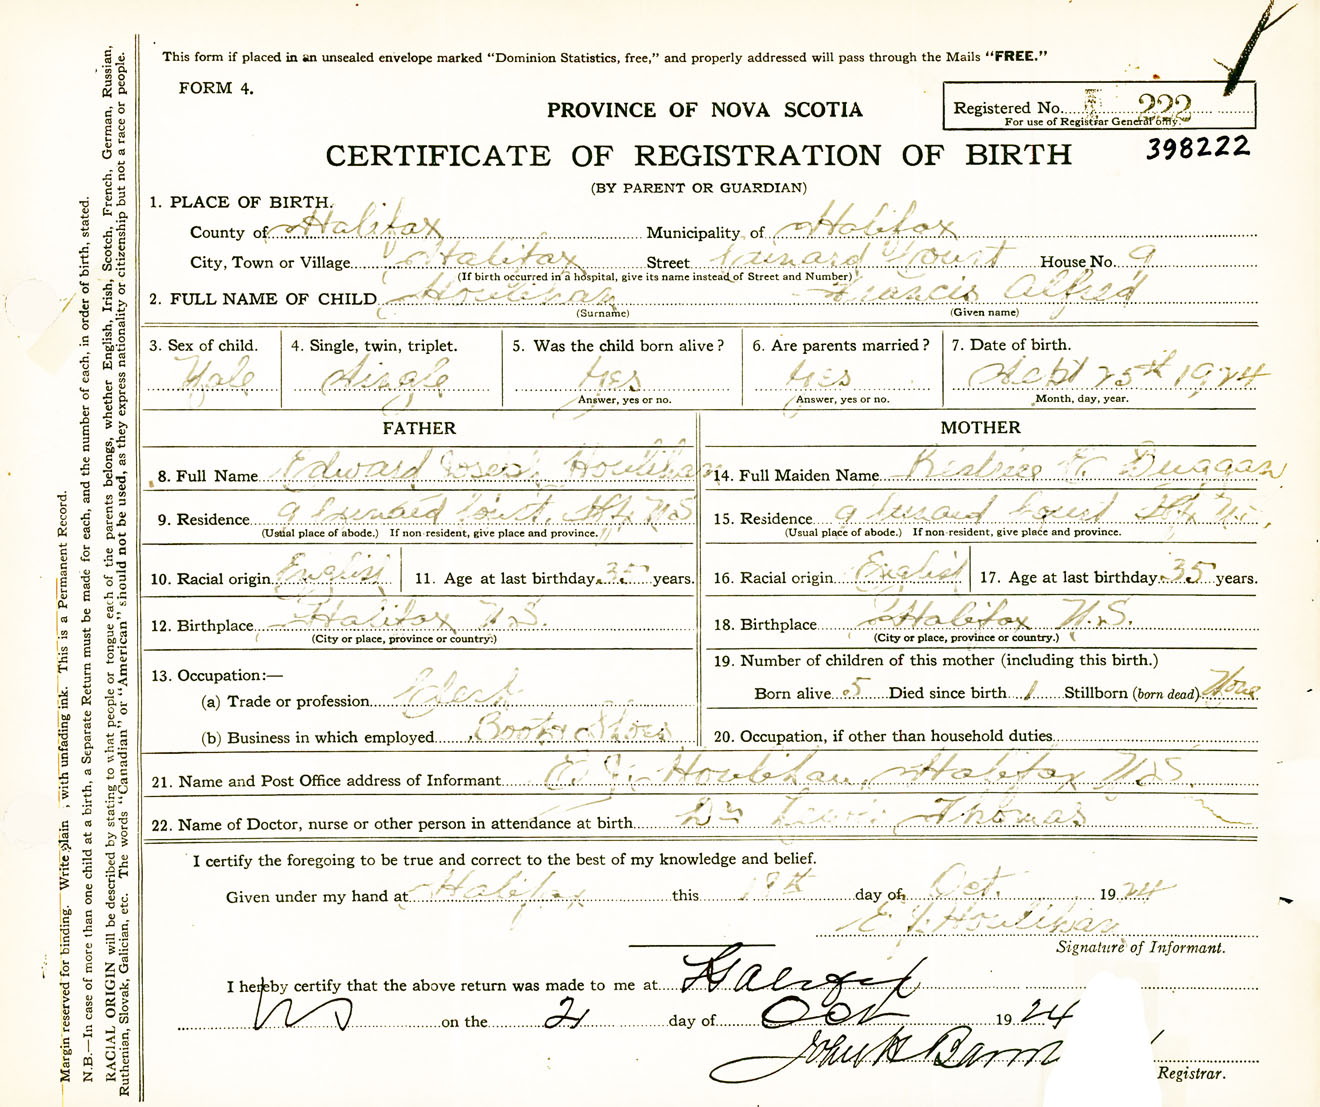 This form if placed in an unsealed envelope marked “Dominion Statistics, free,” and properly addressed will pass through the Mails “FREE.”
FORM 4.
PROVINCE OF NOVA SCOTIA
Registered No. 222
For use of Registrar General only.
CERTIFICATE OF REGISTRATION OF BIRTH
398222
(BY PARENT OR GUARDIAN)
1. PLACE OF BIRTH.
County of Halifax Municipality of Halifax
City, Town or Village Halifax Street Court House No. 9
(If birth occurred in a hospital, give its name instead of Street and Number)
2. FULL NAME OF CHILD Houlihan Francis Alfred
(Surname) (Given name)
3. Sex of child. 4. Single, twin, triplet. 5. Was the child born alive? 6. Are parents married? 7. Date of birth.
Male Single Yes Yes Sept 25th 1924
Answer, yes or no. Answer, yes or no. Month, day, year.
FATHER MOTHER
8. Full Name Edward Joseph Houlihan 14. Full Maiden Name Beatrice E. Duggan
9. Residence 9 Court, Hfx N.S. 15. Residence 9 Court Hfx N.S.
(Usual place of abode.) If non-resident, give place and province. (Usual place of abode.) If non-resident, give place and province.
10. Racial origin English 11. Age at last birthday 35 years. 16. Racial origin English 17. Age at last birthday 35 years.
12. Birthplace Halifax N.S. 18. Birthplace Halifax N.S.
(City or place, province or country.) (City or place, province or country.)
13. Occupation:— 19. Number of children of this mother (including this birth.)
(a) Trade or profession Clerk Born alive 5 Died since birth 1 Stillborn (born dead) None
(b) Business in which employed Boot & Shoes 20. Occupation, if other than household duties
21. Name and Post Office address of Informant E. J. Houlihan, Halifax N.S.
22. Name of Doctor, nurse or other person in attendance at birth Dr Thomas
I certify the foregoing to be true and correct to the best of my knowledge and belief.
Given under my hand at Halifax this day of Oct. 1924
E. J. Houlihan
Signature of Informant.
I hereby certify that the above return was made to me at Halifax
NS on the 21 day of Oct 1924
John H Barn
Registrar.
Margin reserved for binding. Write plain, with unfading ink. This is a Permanent Record.
N.B.—In case of more than one child at a birth, a Separate Return must be made for each, and the number of each, in order of birth, stated.
RACIAL ORIGIN will be described by stating to what people or tongue each of the parents belongs, whether English, Irish, Scotch, French, German, Russian,
Ruthenian, Slovak, Galician, etc. The words “Canadian” or “American” should not be used, as they express nationality or citizenship but not a race or people.